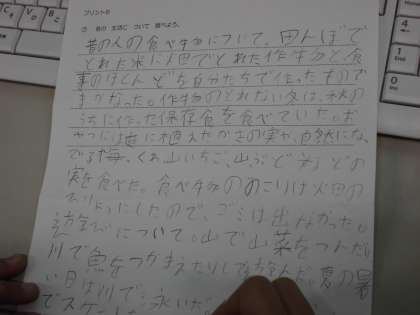 プリント6
③ 昔の 生活に ついて 調べよう。
昔の人の食べ物について。田んぼで
とれた米に畑でとれた作物と食
事のほとんどを自分たちで作ったもので
まかなった。作物のとれない冬は、秋の
うちに作った保存食を食べていた。お
やつには庭に植えたかきの実や、自然にな
でる梅、くわ、山いちご、山ぶどうなどの
実を食べた。食べ物ののこりは畑の
にしたので、ゴミは出なかった。
遊びについて。山で山菜をつんだり
川で魚をつかまえたりして遊んだ。夏の暑
い日は川で泳いだ。
でスケート